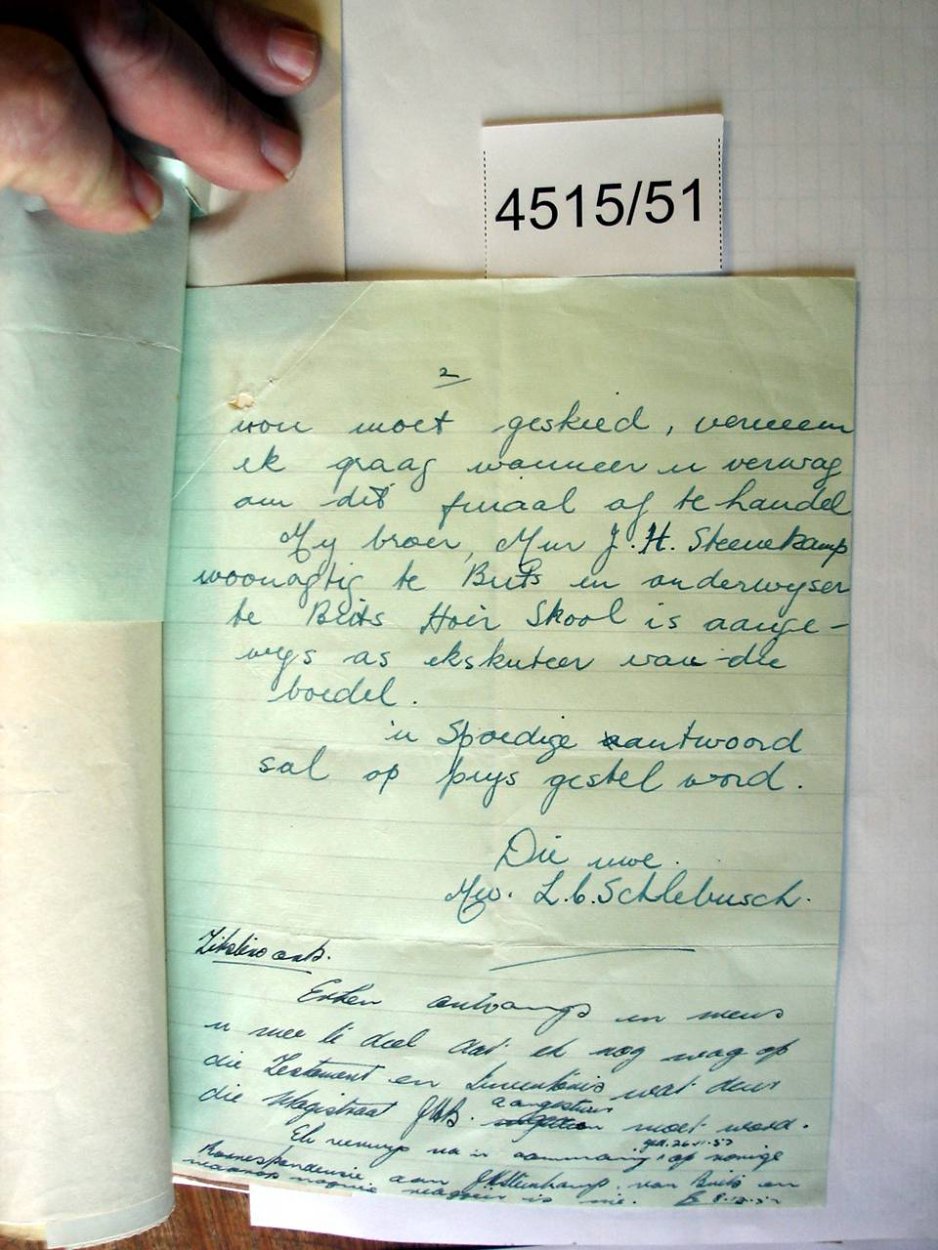 4515/51
2
moet geskied, verneem
ek graag wanneer u verwag
om dit finaal af te handel
My broer, Mnr J. H. Steenekamp
woonagtig te Brits en onderwyser
te Brits Hoër Skool is aange-
wys as ekskuteer van die
boedel.
'n Spoedige antwoord
sal op prys gestel word.
Die uwe.
Mev. L. C. Schlebusch.
Erken ontvangs en meld
u mee te deel dat ek nog wag op
die Testament en Inventaris wat deur
die Magistraat JHB. aangestuur moet word.
Ek verwys na 'n aanmaning op vorige
Korrespondensie aan J H Steenkamp van Brits en
waarop nognie reageer is nie.